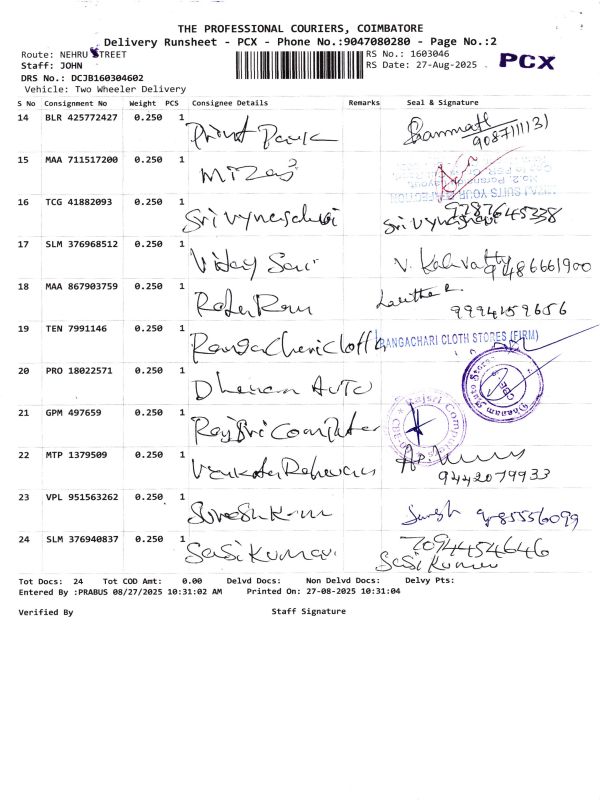 THE PROFESSIONAL COURIERS, COIMBATORE
Delivery Runsheet - PCX - Phone No.:9047080280 - Page No.:2
Route: NEHRU STREET RS No.: 1603046
Staff: JOHN RS Date: 27-Aug-2025 PCX
DRS No.: DCJB160304602
Vehicle: Two Wheeler Delivery
S No Consignment No Weight PCS Consignee Details Remarks Seal & Signature
14 BLR 425772427 0.250 1
15 MAA 711517200 0.250 1
16 TCG 41882093 0.250 1 9787645338
17 SLM 376968512 0.250 1 9486661900
18 MAA 867903759 0.250 1 Lalitha 9994159656
19 TEN 7991146 0.250 1 Rangachericloth RANGACHARI CLOTH STORES (FIRM)
20 PRO 18022571 0.250 1 Dhanam Auto Dhanam Auto Stores CBE
21 GPM 497659 0.250 1 Rajsri Computer Rajsri Computers
22 MTP 1379509 0.250 1 9442079933
23 VPL 951563262 0.250 1 Sureshkum Suresh
24 SLM 376940837 0.250 1 Sasikumar 7094454646
Sasi Kumar
Tot Docs: 24 Tot COD Amt: 0.00 Delvd Docs: Non Delvd Docs: Delvy Pts:
Entered By :PRABUS 08/27/2025 10:31:02 AM Printed On: 27-08-2025 10:31:04
Verified By Staff Signature